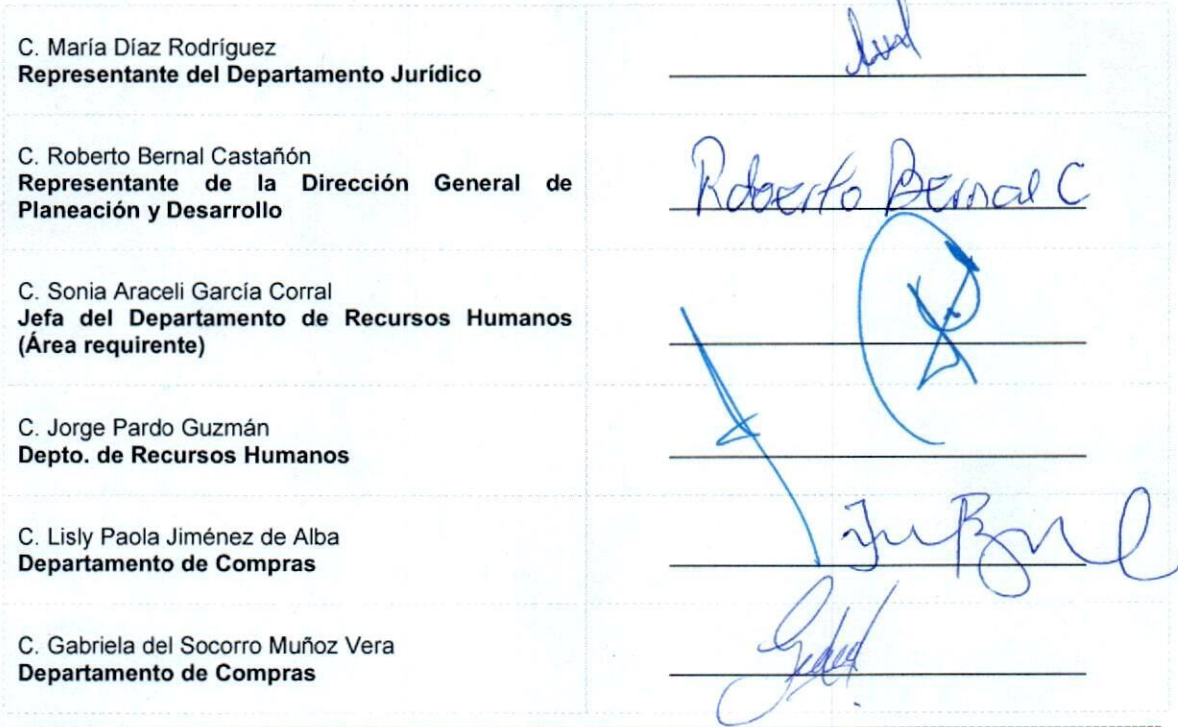 C. María Díaz Rodríguez
Representante del Departamento Jurídico
C. Roberto Bernal Castañón
Representante de la Dirección General de
Planeación y Desarrollo
Roberto Bernal C
C. Sonia Araceli García Corral
Jefa del Departamento de Recursos Humanos
(Área requirente)
C. Jorge Pardo Guzmán
Depto. de Recursos Humanos
C. Lisly Paola Jiménez de Alba
Departamento de Compras
C. Gabriela del Socorro Muñoz Vera
Departamento de Compras